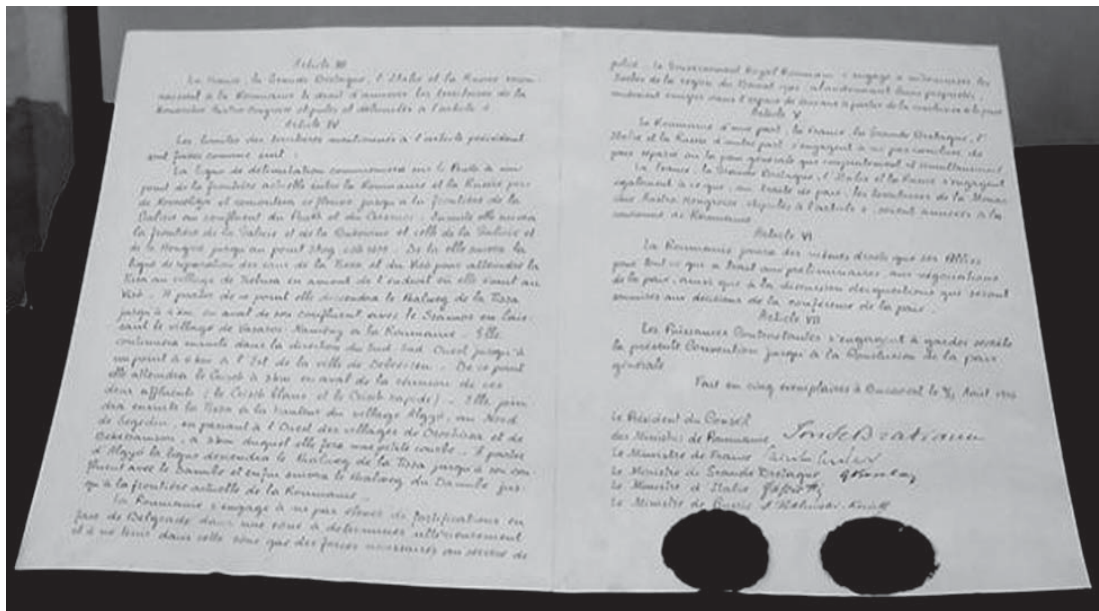 Article III
La France, la Grande Bretagne, l'Italie et la Russie recon-
naissent à la Roumanie le droit d'annexer les territoires de la
Monarchie Austro-Hongroise stipulés et délimités à l'article 4.
Article IV
Les limites des territoires mentionnés à l'article précédent
sont fixées comme suit :
La ligne de délimitation commencera sur le Pruth à un
point de la frontière actuelle entre la Roumanie et la Russie près
de Novoselitza et remontera ce fleuve jusqu'à la frontière de la
Galicie au confluent du Pruth et du Ceremos. Ensuite elle suivra
la frontière de la Galicie et de la Bukovine et celle de la Galicie et
de la Hongrie jusqu'au point Stog cote 1655. De là elle suivra la
ligne de séparation des eaux de la Tissa et du Viso pour atteindre la
Tissa au village de Trebusa en amont de l'endroit où elle s'unit au
Viso. A partir de ce point elle descendra le thalweg de la Tissa
jusqu'à 4 km. en aval de son confluent avec le Szamos en lais-
sant le village de Vasaros-Nameny à la Roumanie. Elle
continuera ensuite dans la direction du Sud Sud Ouest jusqu'à
un point à 6 km à l'Est de la ville de Debrecsen. De ce point
elle atteindra le Crisch à 3 km en aval de la réunion de ses
deux affluents (le Crisch blanc et le Crisch rapide). Elle join-
dra ensuite la Tissa à la hauteur du village Algyö, au Nord
de Szegedin, en passant à l'Ouest des villages de Oroshaza et de
Bekessamson, à 3 km duquel elle fera une petite courbe. A partir
d'Algyö la ligne descendra le thalweg de la Tissa jusqu'à son con-
fluent avec le Danube et enfin suivra le thalweg du Danube jus-
qu'à la frontière actuelle de la Roumanie.
La Roumanie s'engage à ne pas élever de fortifications en
face de Belgrade dans une zone à déterminer ultérieurement
et à ne tenir dans cette zone que des forces nécessaires au service de
police. Le Gouvernement Royal Roumain s'engage à indemniser les
Serbes de la région du Banat qui, abandonnant leurs propriétés,
voudraient émigrer dans l'espace de deux ans à partir de la conclusion de la paix
Article V
La Roumanie d'une part, la France, la Grande Bretagne, l'
Italie et la Russie d'autre part, s'engagent à ne pas conclure de
paix séparée ou la paix générale que conjointement et simultanément
La France, la Grande Bretagne, l'Italie et la Russie s'engagent
également à ce que, au traité de paix, les territoires de la Monar-
chie Austro-Hongroise, stipulés à l'article 4, soient annexés à la
couronne de Roumanie.
Article VI
La Roumanie jouira des mêmes droits que ses Alliés
pour tout ce qui a trait aux préliminaires, aux négociations
de la paix, ainsi que à la discussion des questions qui seront
soumises aux décisions de la conférence de la paix.
Article VII
Les Puissances Contractantes s'engagent à garder secrète
la présente Convention jusqu'à la conclusion de la paix
générale
Fait en cinq exemplaires à Bucarest le Août 1916
Le Président du Conseil
des Ministres de Roumanie
Le Ministre de France
Le Ministre de Grande Bretagne
Le Ministre d'Italie
Le Ministre de Russie